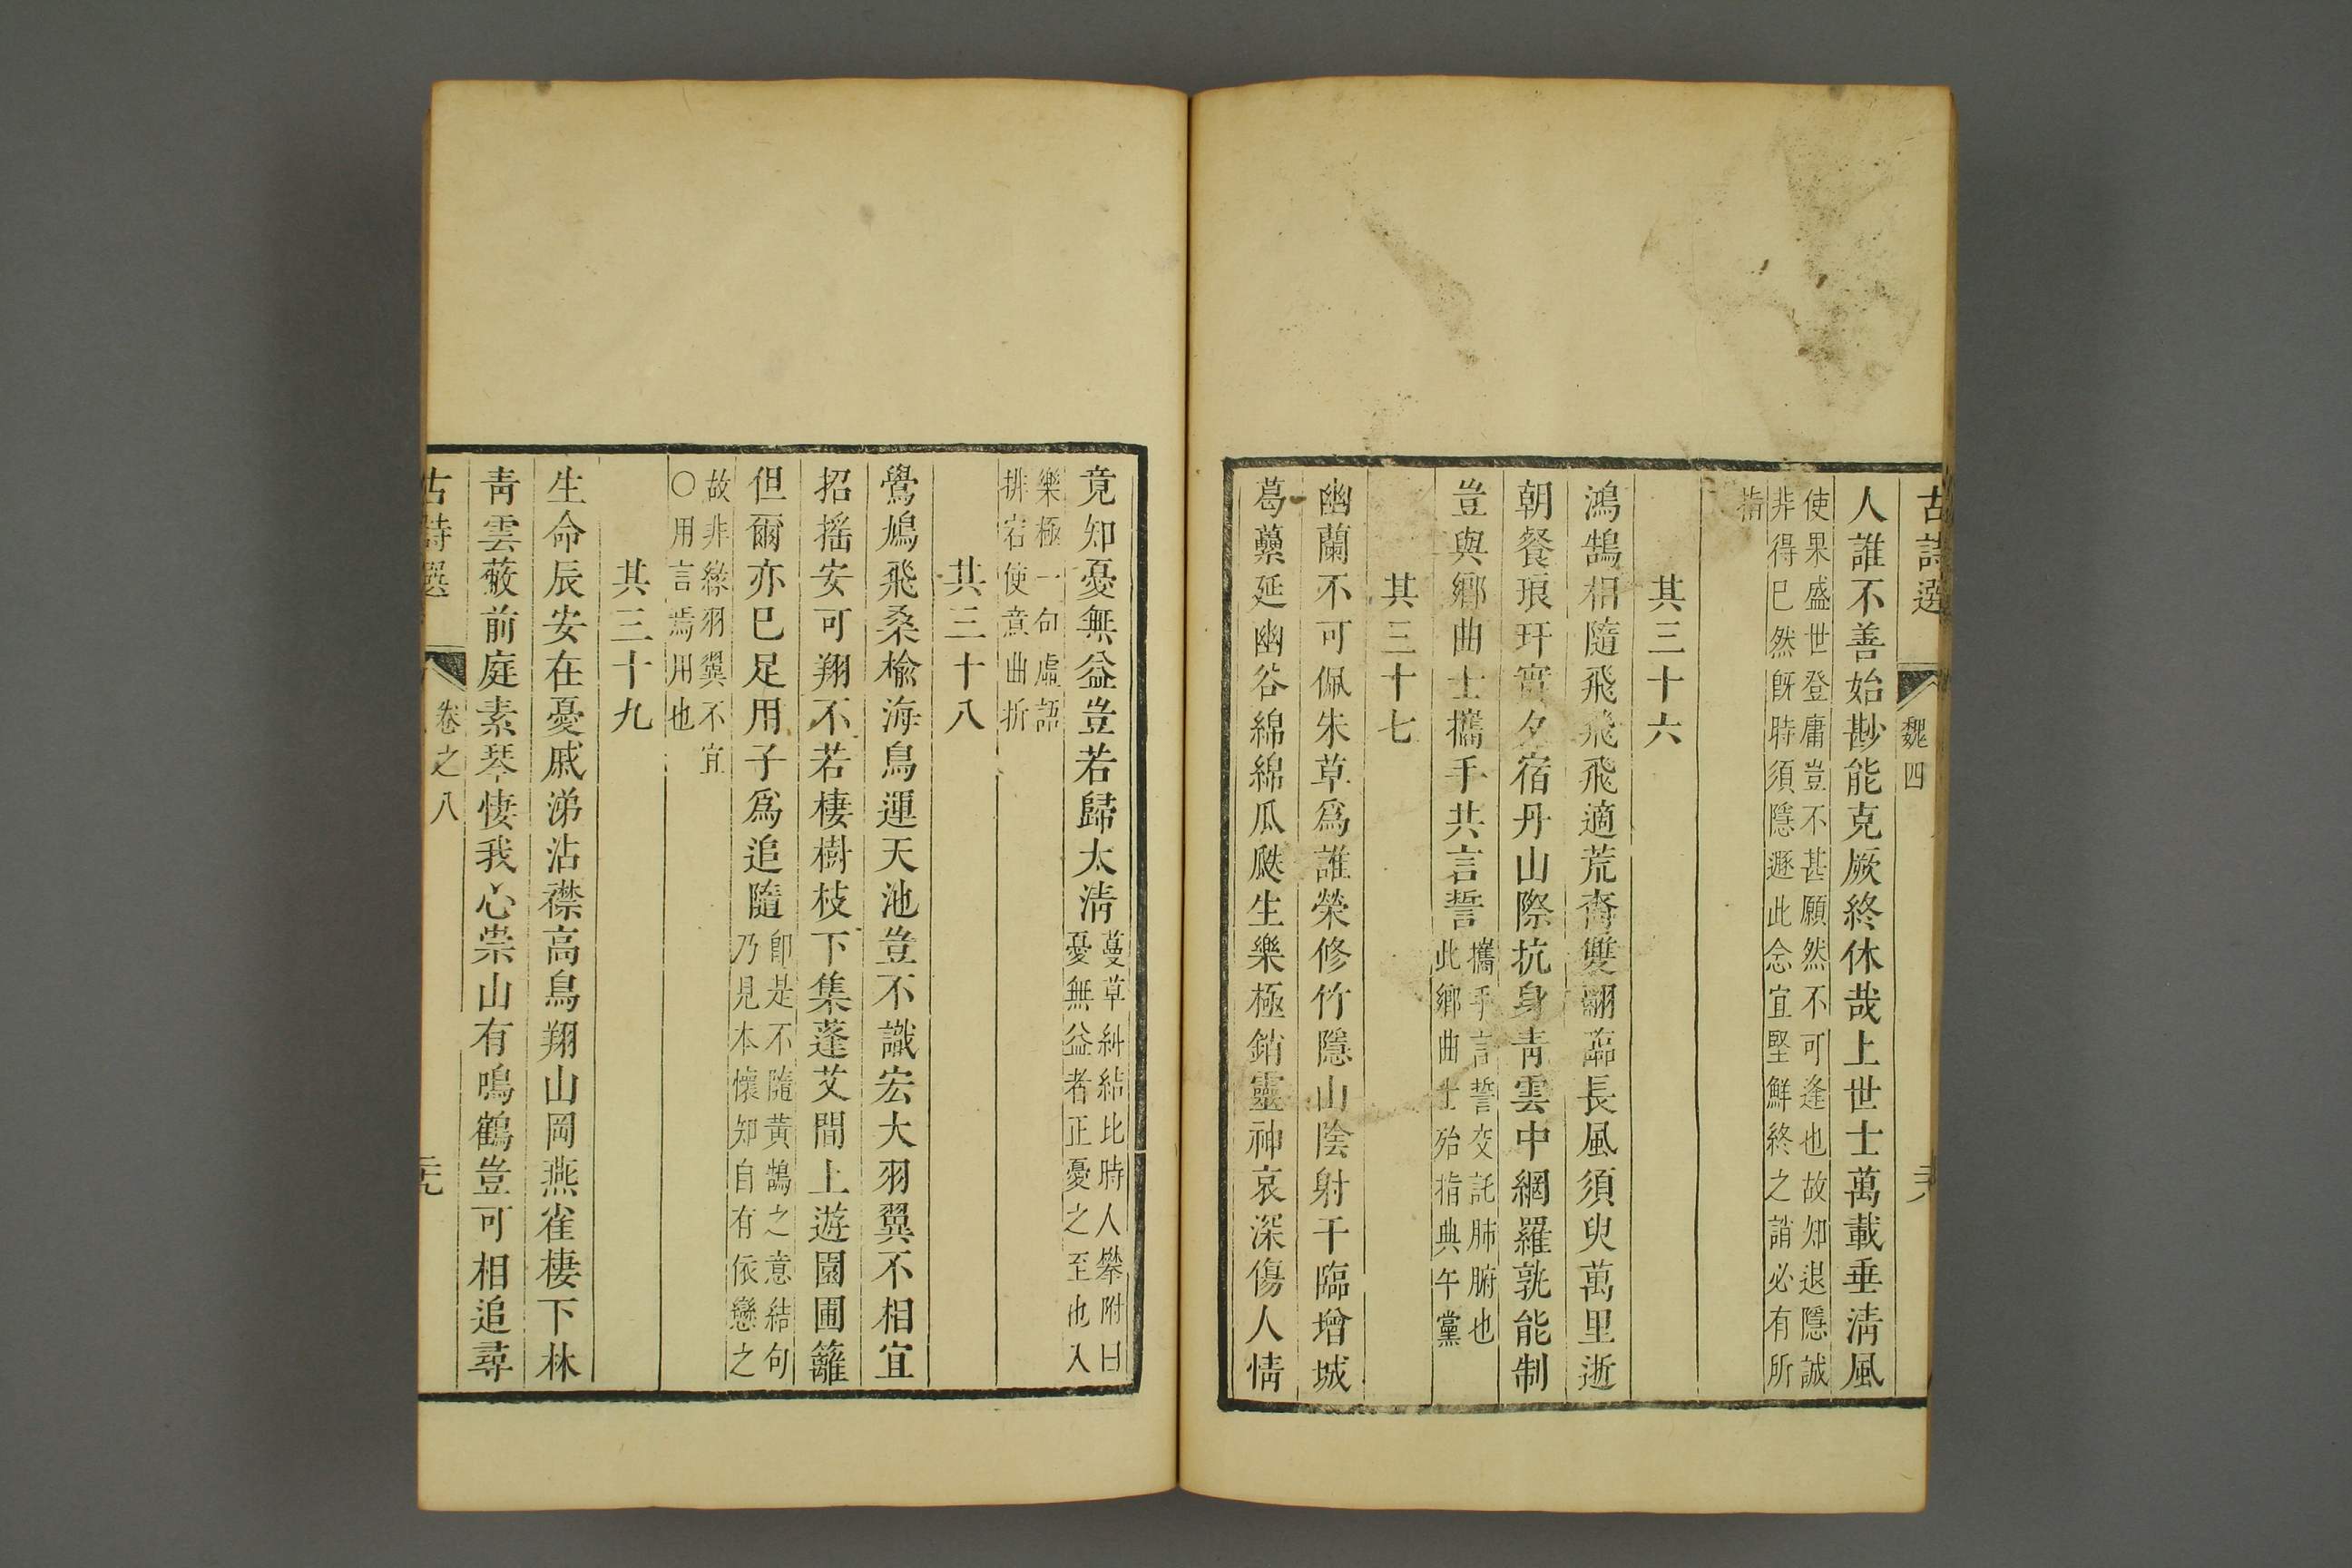 古詩選
魏四
六
人誰不善始尠能克厥終休哉上世士萬載垂淸風
使果盛世登庸豈不甚願然不可逢也故知退隱誠
非得已然旣時須隱遯此念宜堅鮮終之誚必有所
指
其三十六
鴻鵠相隨飛飛飛適荒裔雙翮臨長風須臾萬里逝
朝餐琅玕實夕宿丹山際抗身靑雲中網羅孰能制
豈與鄉曲士攜手共言誓
攜手言誓交託肺腑也
此鄉曲士殆指典午黨
其三十七
幽蘭不可佩朱草爲誰榮修竹隱山陰射干臨增城
葛藟延幽谷綿綿瓜瓞生樂極銷靈神哀深傷人情
竟知憂無益豈若歸太淸
蔓草糾結比時人攀附日
憂無益者正憂之至也入
樂極一句虛語
排宕使意曲折
其三十八
鷽鳩飛桑榆海鳥運天池豈不識宏大羽翼不相宜
招搖安可翔不若棲樹枝下集蓬艾間上遊園圃籬
但爾亦已足用子爲追隨
卽是不隨黃鵠之意結句
乃見本懷知自有依戀之
故非緣羽翼不宜
○用言焉用也
其三十九
生命辰安在憂戚涕沾襟高鳥翔山岡燕雀棲下林
靑雲蔽前庭素琴悽我心崇山有鳴鶴豈可相追尋
古詩選
卷之八